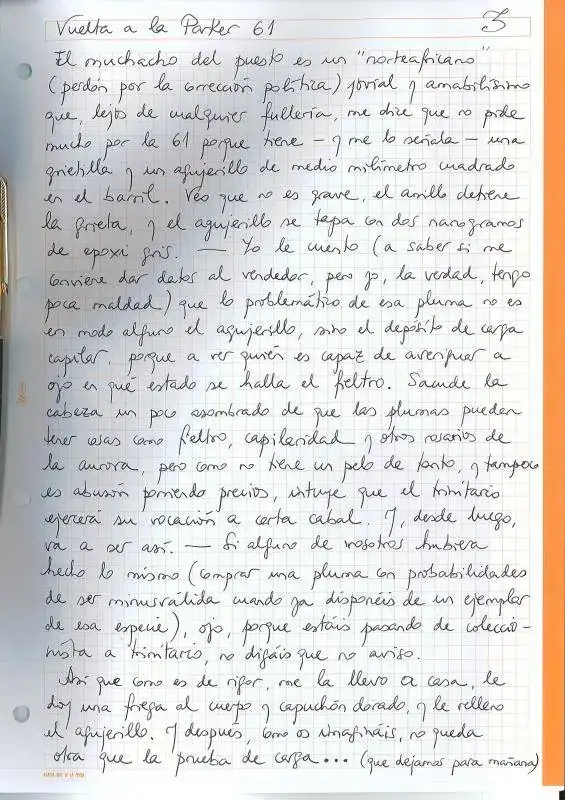 Vuelta a la Parker 61 3
El muchacho del puesto es un "norteafricano"
(perdón por la corrección política) jovial y amabilísimo
que, lejos de cualquier fullería, me dice que no pide
mucho por la 61 porque tiene – y me lo señala – una
grietilla y un agujerillo de medio milímetro cuadrado
en el barril. Veo que no es grave, el anillo detiene
la grieta, y el agujerillo se tapa con dos nanogramos
de epoxi gris. — Yo le cuento (a saber si me
conviene dar datos al vendedor, pero yo, la verdad, tengo
poca maldad) que lo problemático de esa pluma no es
en modo alguno el agujerillo, sino el depósito de carga
capilar, porque a ver quién es capaz de averiguar a
ojo en qué estado se halla el fieltro. Sacude la
cabeza un poco asombrado de que las plumas puedan
tener cosas como fieltro, capilaridad y otros rosarios de
la aurora, pero como no tiene un pelo de tonto, y tampoco
es abusón poniendo precios, intuye que el trinitario
ejercerá su vocación a carta cabal. Y, desde luego,
va a ser así. — Si alguno de vosotros hubiera
hecho lo mismo (comprar una pluma con probabilidades
de ser minusválida cuando ya disponéis de un ejemplar
de esa especie), ojo, porque estáis pasando de coleccio-
nista a trinitario, no digáis que no aviso.
Así que como es de rigor, me la llevo a casa, le
doy una friega al cuerpo y capuchón dorado, y le relleno
el agujerillo. Y después, como os imagináis, no queda
otra que la prueba de carga... (que dejamos para mañana)